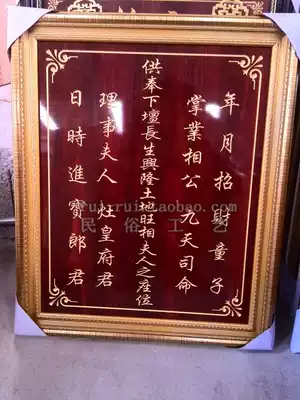 年月招財童子
掌業相公 九天司命
供奉下壇長生興隆土地旺相夫人之座位
理事夫人 灶皇府君
日時進寶郎君
ruirui.taobao.com
民俗工艺